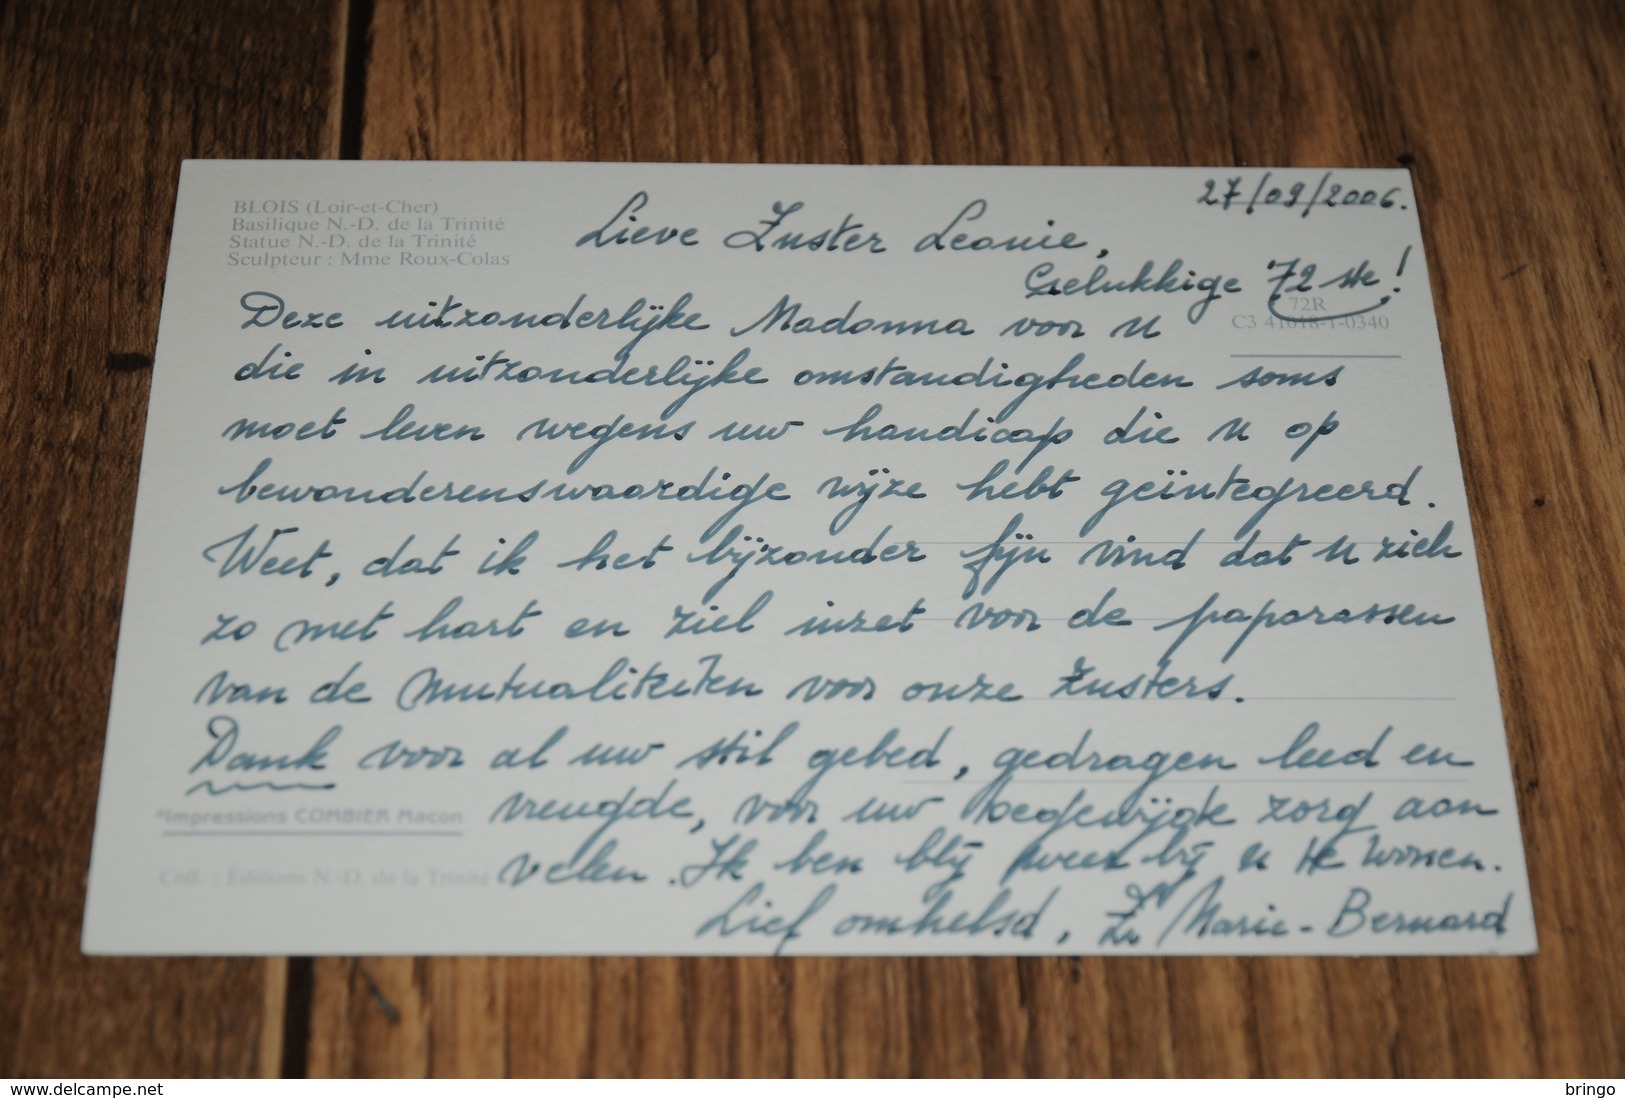 27/09/2006.
BLOIS (Loir-et-Cher)
Basilique N.-D. de la Trinité
Statue N.-D. de la Trinité
Sculpteur : Mme Roux-Colas
Lieve Zuster Leonie,
Gelukkige 72 ste!
72R
C3 41018-1-0340
Deze uitzonderlijke Madonna voor u
die in uitzonderlijke omstandigheden soms
moet leven wegens uw handicap die u op
bewonderenswaardige wijze hebt geïntegreerd.
Weet, dat ik het bijzonder fijn vind dat u zich
zo met hart en ziel inzet voor de paparassen
van de Mutualiteiten voor onze Zusters.
Dank voor al uw stil gebed, gedragen leed en
vreugde, voor uw toegewijde zorg aan
velen. Ik ben blij weer bij u te wonen.
Lief omhelsd, Zr Marie-Bernard
*Impressions COMBIER Macon
Coll. : Editions N.-D. de la Trinité
www.delcampe.net
bringo